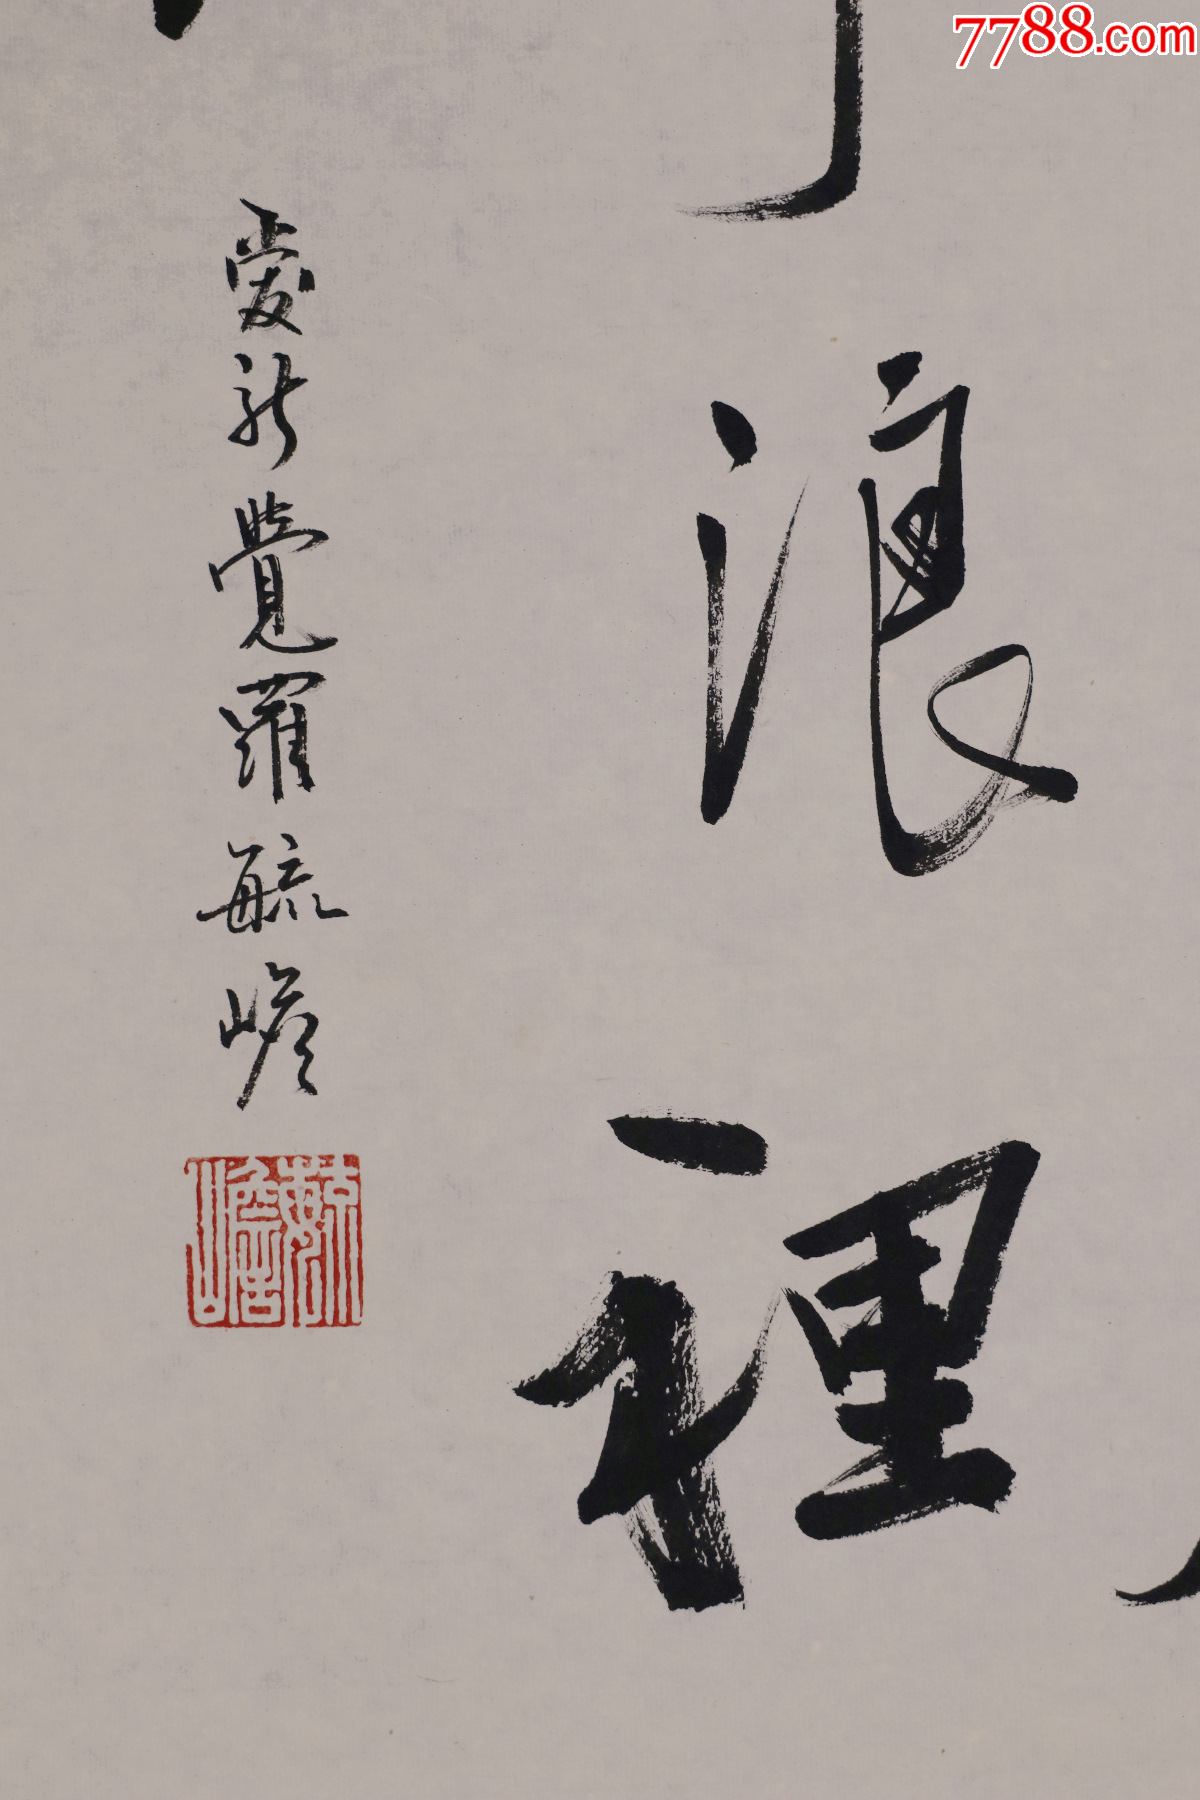 7788.com
浪裡
愛新覺羅毓嶦
毓嶦